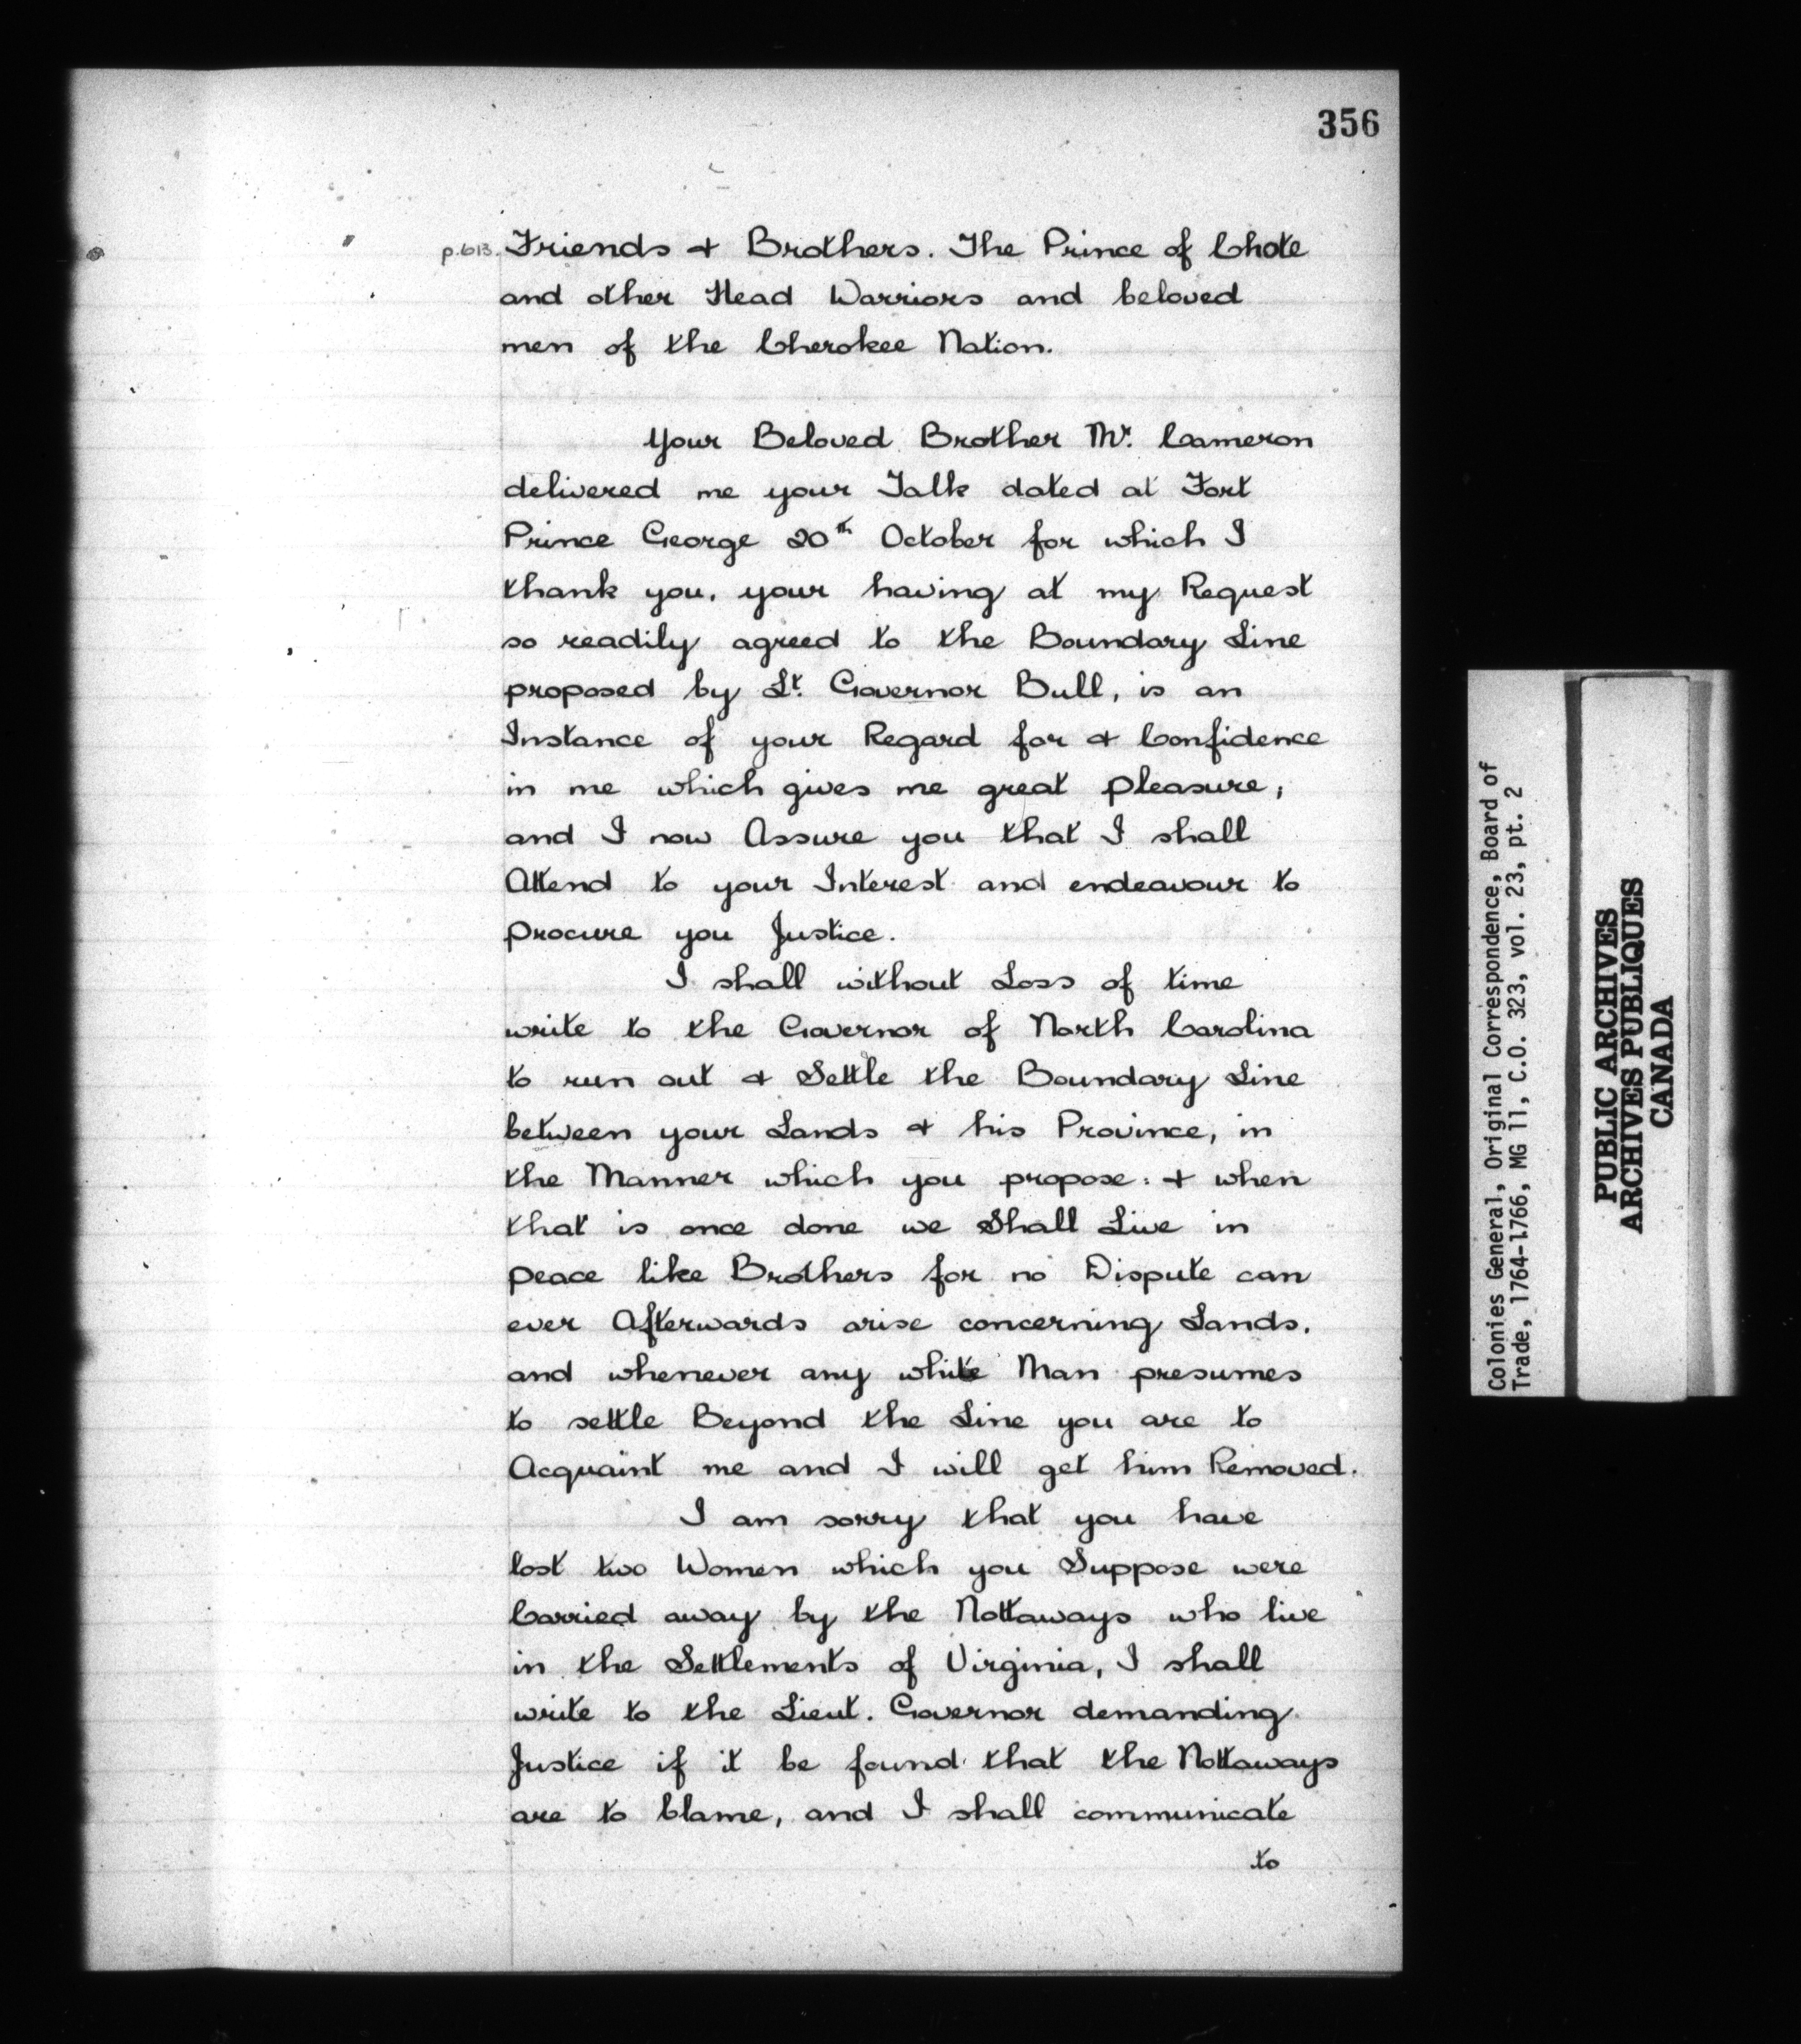 356
p.613. Friends & Brothers. The Prince of Chote
and other Head Warriors and beloved
men of the Cherokee Nation.
Your Beloved Brother Mr. Cameron
delivered me your Talk dated at Fort
Prince George 20th October for which I
thank you, your having at my Request
so readily agreed to the Boundary Line
proposed by Lt. Governor Bull, is an
Instance of your Regard for & Confidence
in me which gives me great pleasure,
and I now Assure you that I shall
Attend to your Interest and endeavour to
procure you Justice.
I shall without Loss of time
write to the Governor of North Carolina
to run out & Settle the Boundary Line
between your Lands & his Province, in
the Manner which you propose: & when
that is once done we Shall Live in
peace like Brothers for no Dispute can
ever Afterwards arise concerning Lands,
and whenever any white Man presumes
to settle Beyond the Line you are to
Acquaint me and I will get him Removed.
I am sorry that you have
lost two Women which you Suppose were
Carried away by the Nottaways who live
in the Settlements of Virginia, I shall
write to the Lieut. Governor demanding
Justice if it be found that the Nottaways
are to blame, and I shall communicate
to
Colonies General, Original Correspondence, Board of
Trade, 1764-1766, MG 11, C.O. 323, vol. 23, pt. 2
PUBLIC ARCHIVES
ARCHIVES PUBLIQUES
CANADA